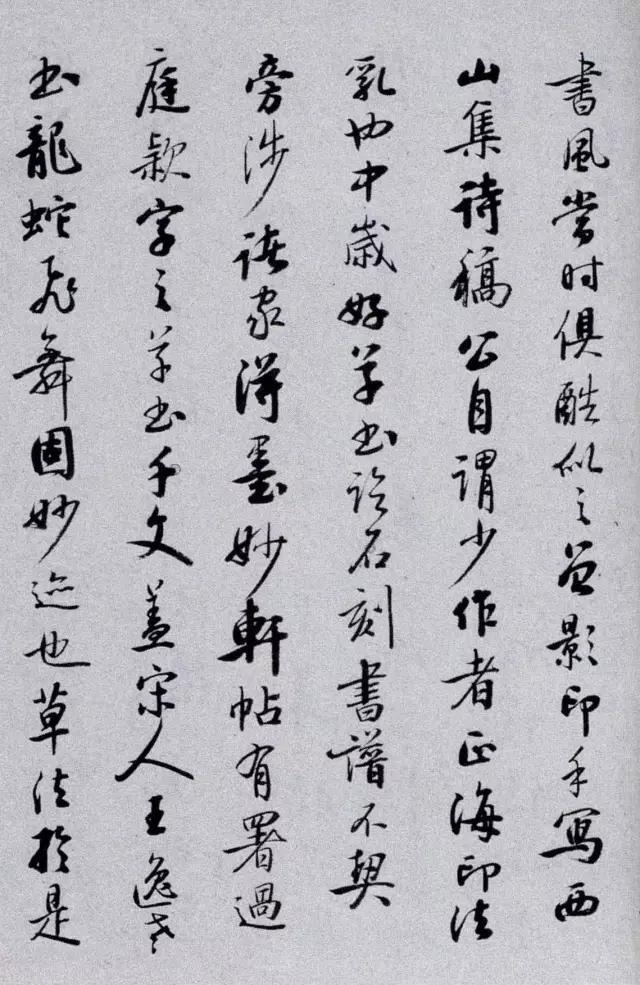 書風嘗时俱酷似之曾影印手寫西
山集诗稿公自謂少作者正海印法
乳也中歲好草书临石刻書譜不契
旁涉诸家得墨妙軒帖有署過
庭款字之草书千文蓋宋人王逸老
书龍蛇飛舞固妙迹也草法於是